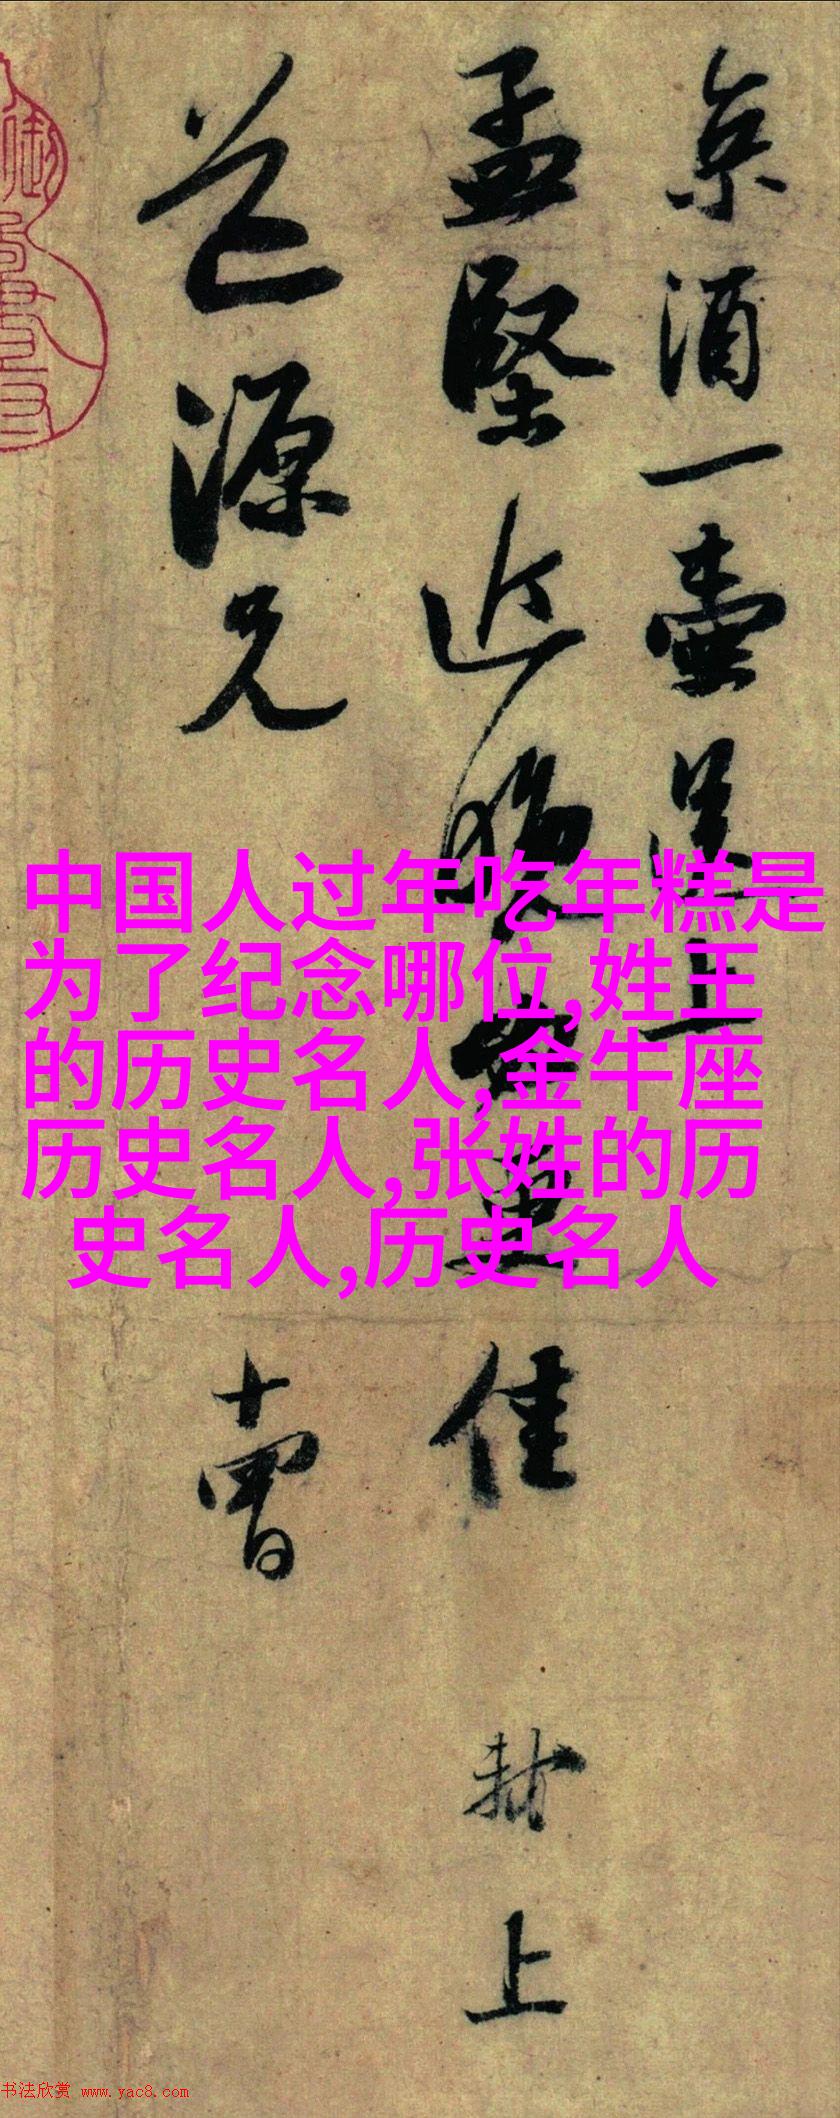 京酒一壺送上
孟堅近晚必更佳
封上
芾
道源兄
十曾
中国人过年吃年糕是
为了纪念哪位,姓王
的历史名人,金牛座
历史名人,张姓的历
史名人,历史名人
书法欣赏 www.yac8.com